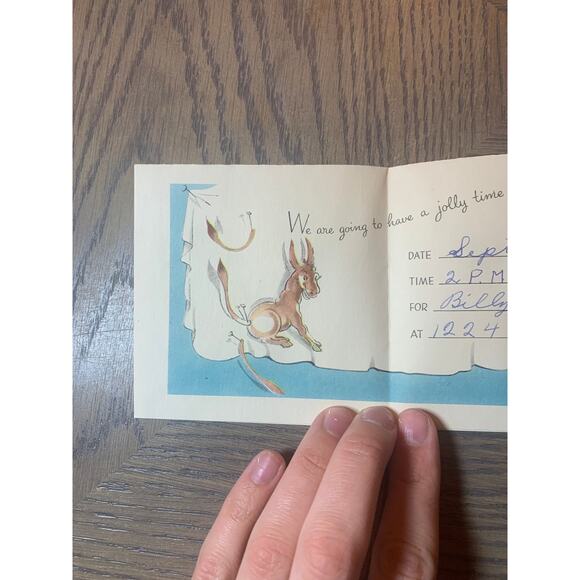 We are going to have a jolly time
DATE Sept
TIME 2 P.M
FOR Billy
AT 1224